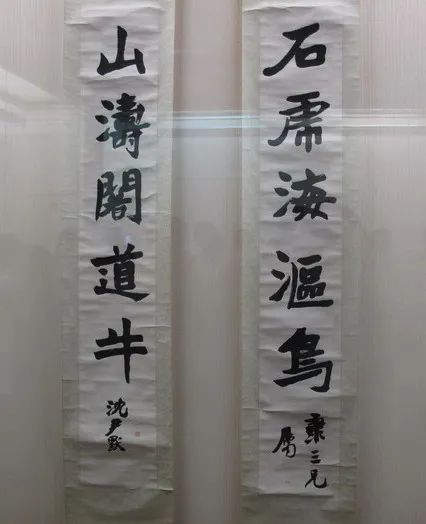 石虎海漚鳥
三兄
属
山濤閣道牛
沈尹默